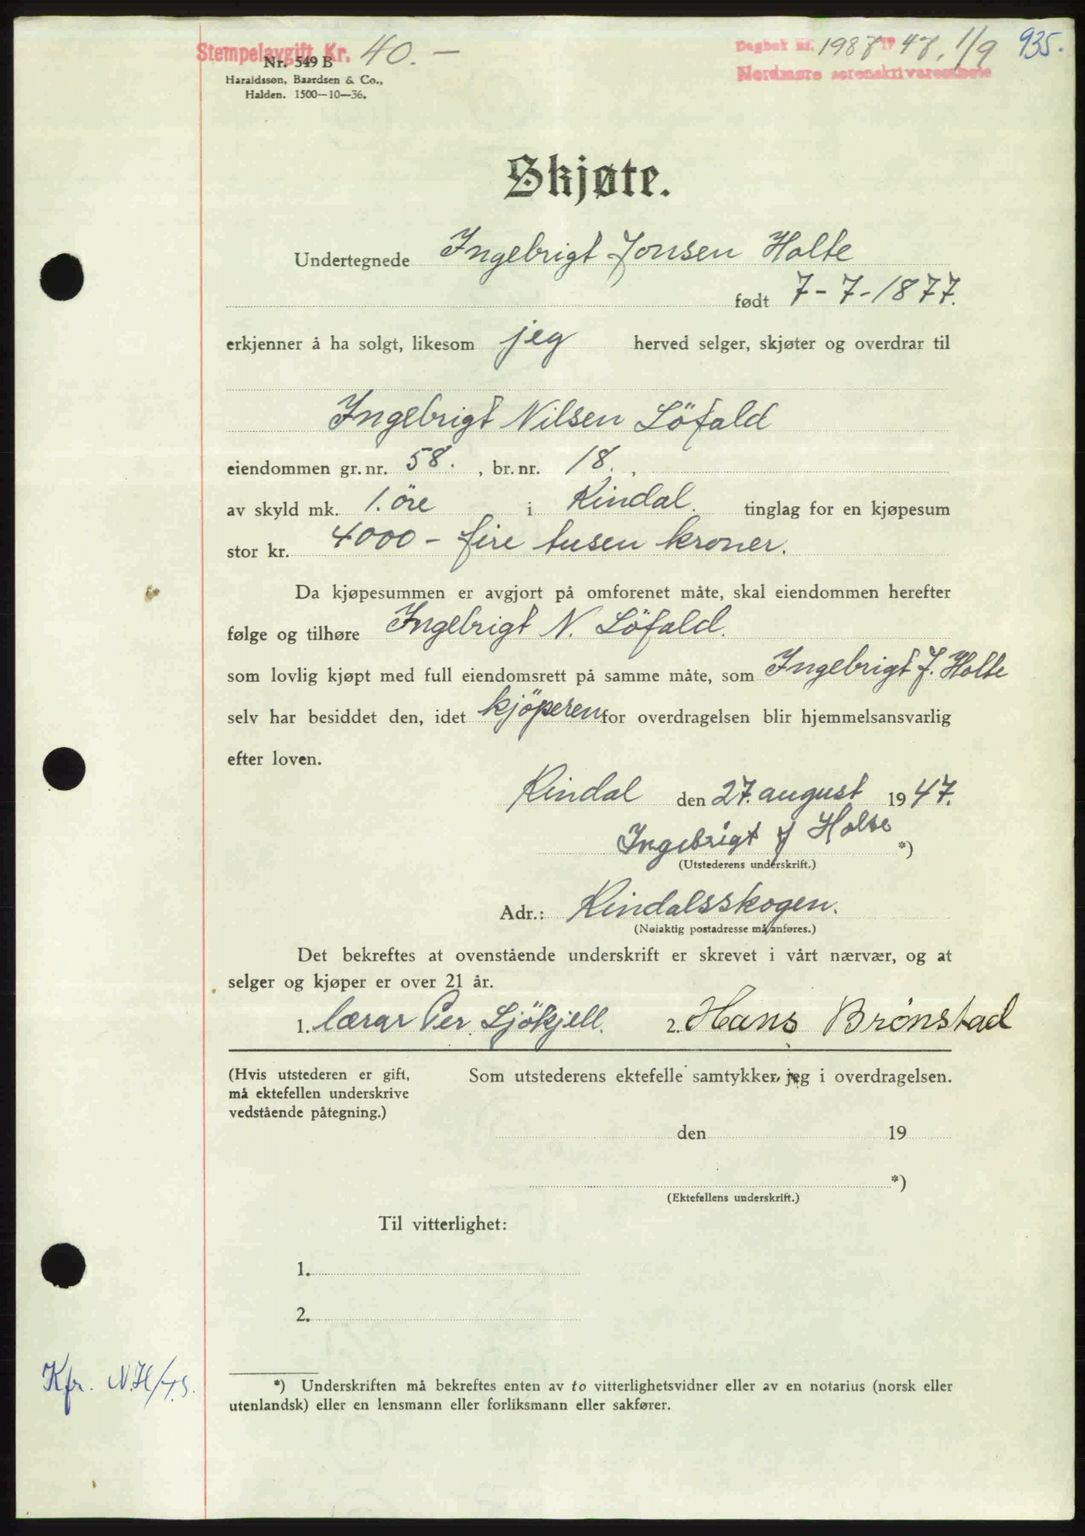 Stempelavgift Kr. 40.–
Nr. 549 B
Haraldsson, Baardsen & Co.,
Halden. 1500—10—36.
Dagbok nr. 1987 19 47. 1/9 935.
Nordmøre sorenskrivarembete
Skjøte.
Undertegnede Ingebrigt Jonsen Holte
født 7-7-1877.
erkjenner å ha solgt, likesom jeg herved selger, skjøter og overdrar til
Ingebrigt Nilsen Löfald
eiendommen gr. nr. 58. , br. nr. 18. ,
av skyld mk. 1. öre i Rindal. tinglag for en kjøpesum
stor kr. 4000 – fire tusen kroner.
Da kjøpesummen er avgjort på omforenet måte, skal eiendommen herefter
følge og tilhøre Ingebrigt N. Löfald.
som lovlig kjøpt med full eiendomsrett på samme måte, som Ingebrigt J. Holte
selv har besiddet den, idet kjöperen for overdragelsen blir hjemmelsansvarlig
efter loven.
Rindal den 27. august 1947.
Ingebrigt J Holte *)
(Utstederens underskrift.)
Adr.: Rindalsskogen.
(Nøiaktig postadresse må anføres.)
Det bekreftes at ovenstående underskrift er skrevet i vårt nærvær, og at
selger og kjøper er over 21 år.
1. lærar Per Ljökjell. 2. Hans Brønstad
(Hvis utstederen er gift,
må ektefellen underskrive
vedstående påtegning.)
Som utstederens ektefelle samtykker jeg i overdragelsen.
den 19
*)
(Ektefellens underskrift.)
Til vitterlighet:
1.
2.
Kfr. N.H/
*) Underskriften må bekreftes enten av to vitterlighetsvidner eller av en notarius (norsk eller
utenlandsk) eller en lensmann eller forliksmann eller sakfører.